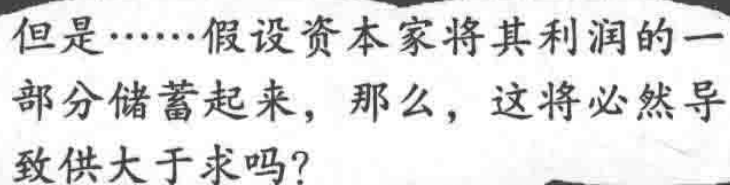 但是……假设资本家将其利润的一
部分储蓄起来，那么，这将必然导
致供大于求吗？